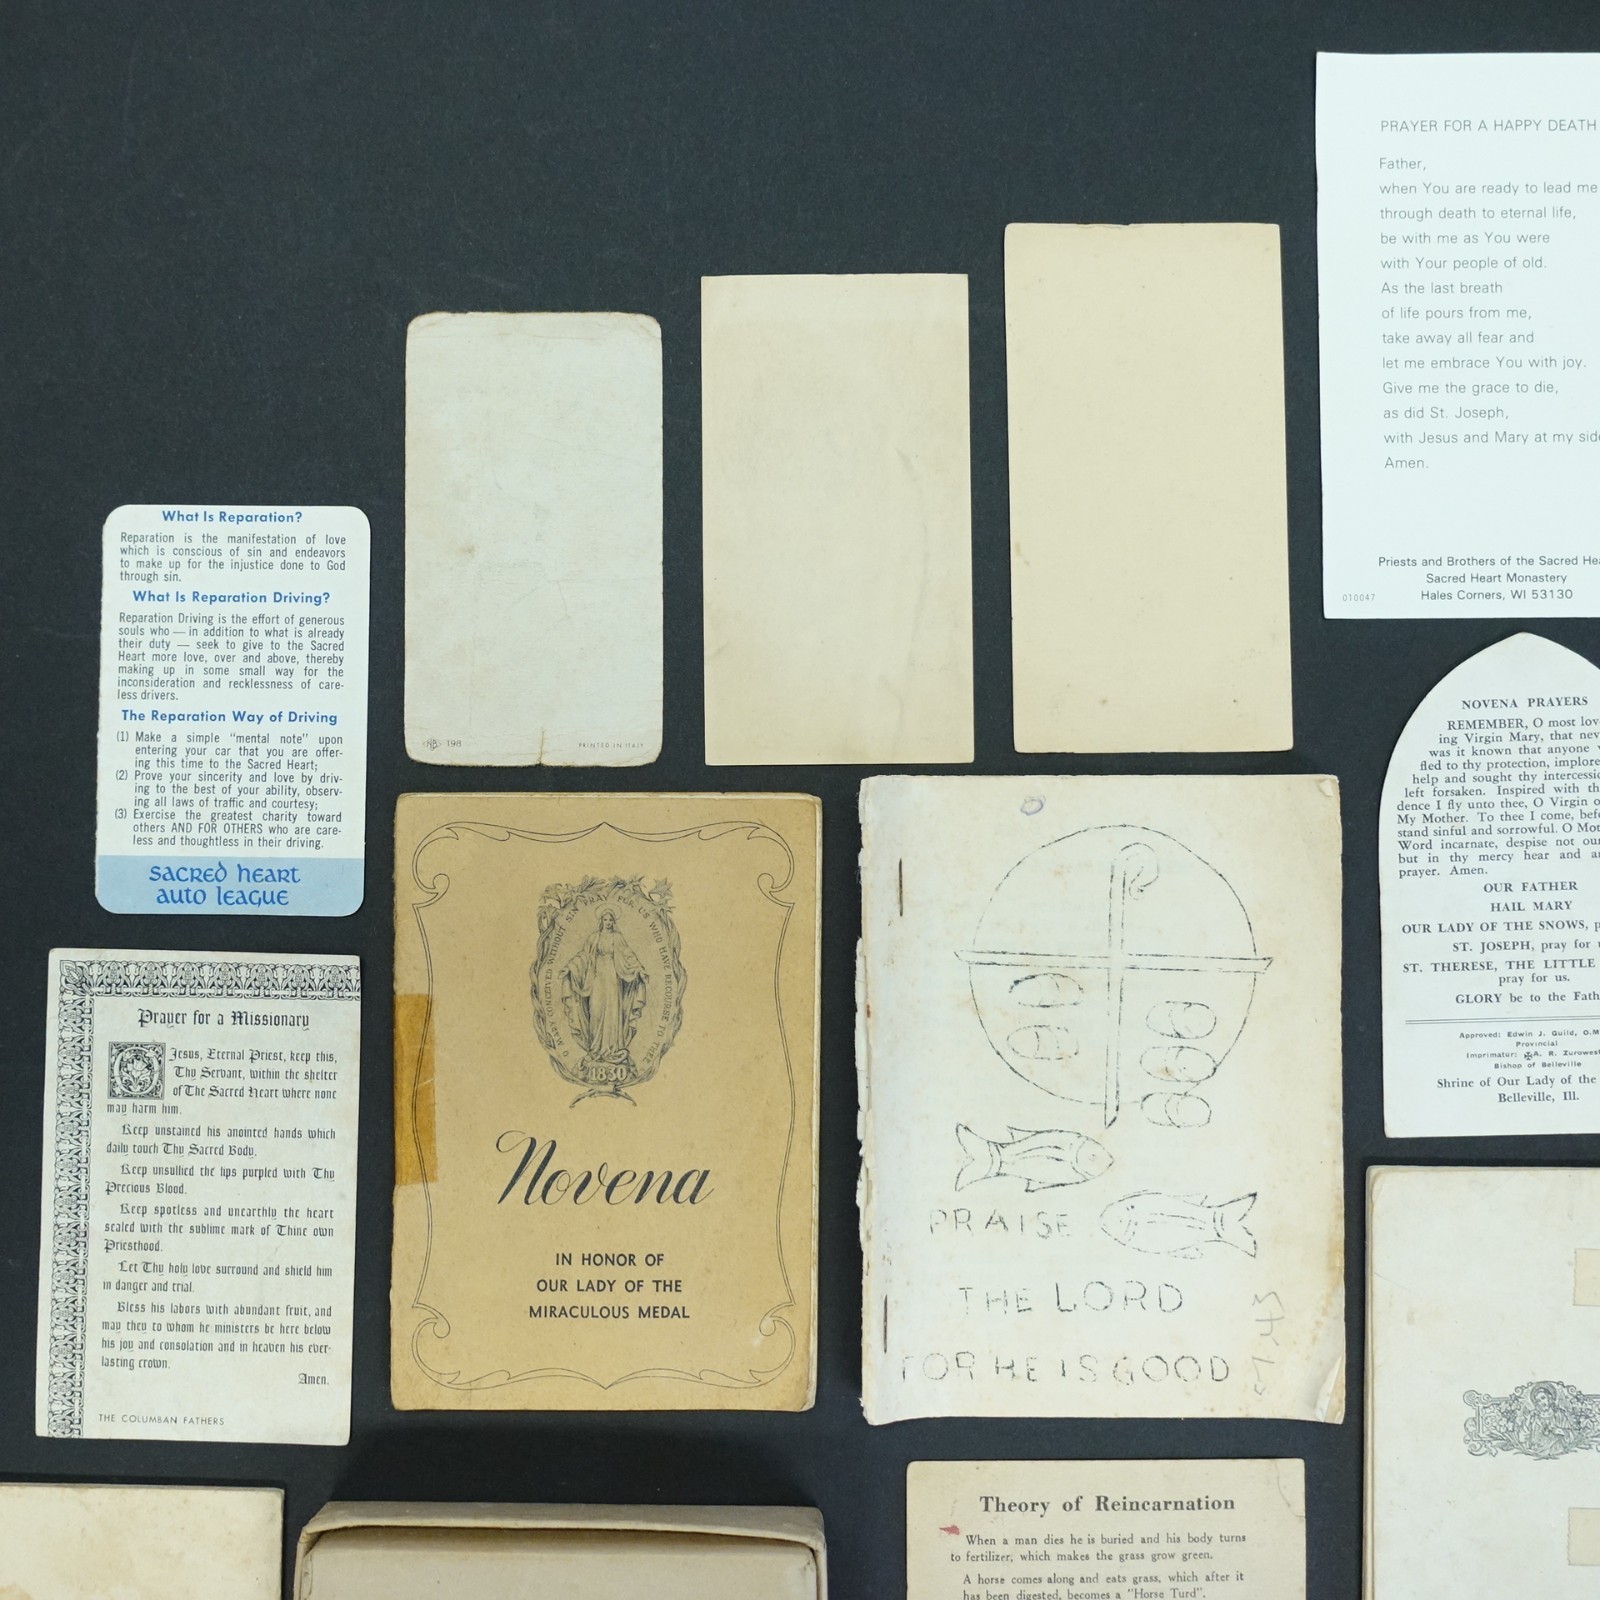 PRAYER FOR A HAPPY DEATH
Father,
when You are ready to lead me
through death to eternal life,
be with me as You were
with Your people of old.
As the last breath
of life pours from me,
take away all fear and
let me embrace You with joy.
Give me the grace to die,
as did St. Joseph,
with Jesus and Mary at my side
Amen.
Priests and Brothers of the Sacred Hea
Sacred Heart Monastery
010047 Hales Corners, WI 53130
What Is Reparation?
Reparation is the manifestation of love
which is conscious of sin and endeavors
to make up for the injustice done to God
through sin.
What Is Reparation Driving?
Reparation Driving is the effort of generous
souls who — in addition to what is already
their duty — seek to give to the Sacred
Heart more love, over and above, thereby
making up in some small way for the
inconsideration and recklessness of care-
less drivers.
The Reparation Way of Driving
(1) Make a simple "mental note" upon
entering your car that you are offer-
ing this time to the Sacred Heart;
(2) Prove your sincerity and love by driv-
ing to the best of your ability, observ-
ing all laws of traffic and courtesy;
(3) Exercise the greatest charity toward
others AND FOR OTHERS who are care-
less and thoughtless in their driving.
sacred heart
auto league
198 PRINTED IN ITALY
NOVENA PRAYERS
REMEMBER, O most lov
ing Virgin Mary, that nev
was it known that anyone
fled to thy protection, implore
help and sought thy intercessi
left forsaken. Inspired with th
dence I fly unto thee, O Virgin o
My Mother. To thee I come, bef
stand sinful and sorrowful. O Mot
Word incarnate, despise not ou
but in thy mercy hear and a
prayer. Amen.
OUR FATHER
HAIL MARY
OUR LADY OF THE SNOWS, p
ST. JOSEPH, pray for
ST. THERESE, THE LITTLE
pray for us.
GLORY be to the Fath
Approved: Edwin J. Guild, O.M
Provincial
Imprimatur: A. R. Zurowes
Bishop of Belleville
Shrine of Our Lady of the
Belleville, Ill.
Prayer for a Missionary
O Jesus, Eternal Priest, keep this,
Thy Servant, within the shelter
of The Sacred Heart where none
may harm him.
Keep unstained his anointed hands which
daily touch Thy Sacred Body.
Keep unsullied the lips purpled with Thy
Precious Blood.
Keep spotless and unearthly the heart
sealed with the sublime mark of Thine own
Priesthood.
Let Thy holy love surround and shield him
in danger and trial.
Bless his labors with abundant fruit, and
may they to whom he ministers be here below
his joy and consolation and in heaven his ever-
lasting crown.
Amen.
THE COLUMBAN FATHERS
O MARY CONCEIVED WITHOUT SIN PRAY FOR US WHO HAVE RECOURSE TO THEE
1830
Novena
IN HONOR OF
OUR LADY OF THE
MIRACULOUS MEDAL
PRAISE
THE LORD
FOR HE IS GOOD
Theory of Reincarnation
When a man dies he is buried and his body turns
to fertilizer, which makes the grass grow green.
A horse comes along and eats grass, which after it
has been digested, becomes a "Horse Turd".